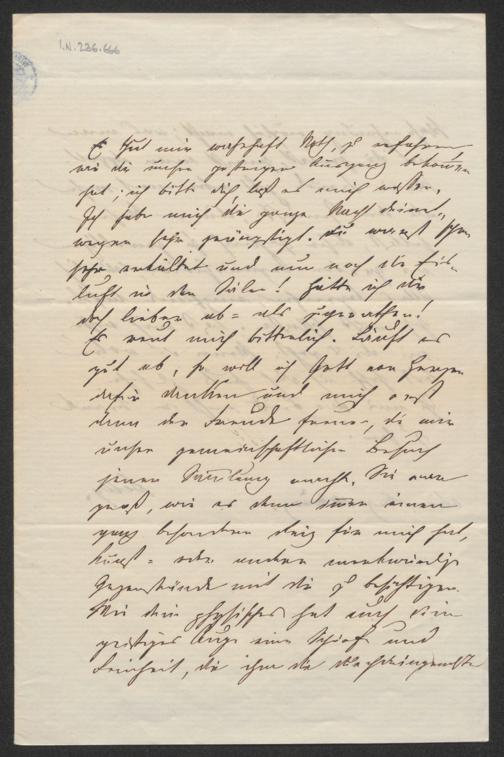 I.N. 226.666
Es thut mir wahrhaft Noth, zu erfahren
wie dir unser gestriger Ausgang bekommen
hat; ich bitte dich laß es mich wissen.
Ich habe mich die ganze Nacht deinet-
wegen sehr geängstigt. Du warst schon
sehr erkältet und nun noch die Eis-
luft in den Sälen! Hätte ich dir
doch lieber ab- als zugerathen!
Es reut mich bitterlich. Läuft es
gut ab, so will ich Gott von Herzen
dafür danken und mich erst
dann der Freude freuen, die mir
unser gemeinschaftlicher Besuch
jener Samlung macht. Sie war
groß, wie es denn immer einen
ganz besondern Reiz für mich hat,
Kunst- oder andere merkwürdige
Gegenstände mit dir zu besichtigen.
Wie dein physisches hat auch dein
geistiges Auge eine Schärfe und
Feinheit, die ihm das